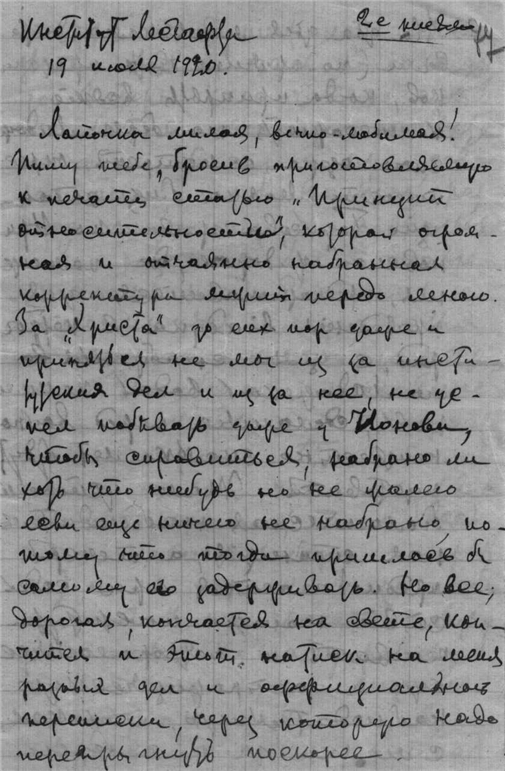 2е письмо
Институт Лесгафта
19 июля 1920.
Лапочка милая, вечно-любимая!
Пишу тебе, бросив приготовляемую
к печати статью „Принцип
относительности", которая огром-
ная и отчаянно набранная
корректура лежит передо мною.
За „Христа" до сих пор даже и
приняться не мог из за инсти-
тутских дел и из за нее, не ус-
пел побывать даже у Ионова,
чтобы справиться, набрано ли
хоть что нибудь но не жалею
если еще ничего не набрано, по-
тому что тогда пришлось бы
самому его задерживать. Но все,
дорогая, кончается на свете, кон-
чится и этот натиск на меня
разных дел и оффициальной
переписки, через которую надо
перепрыгнуть поскорее